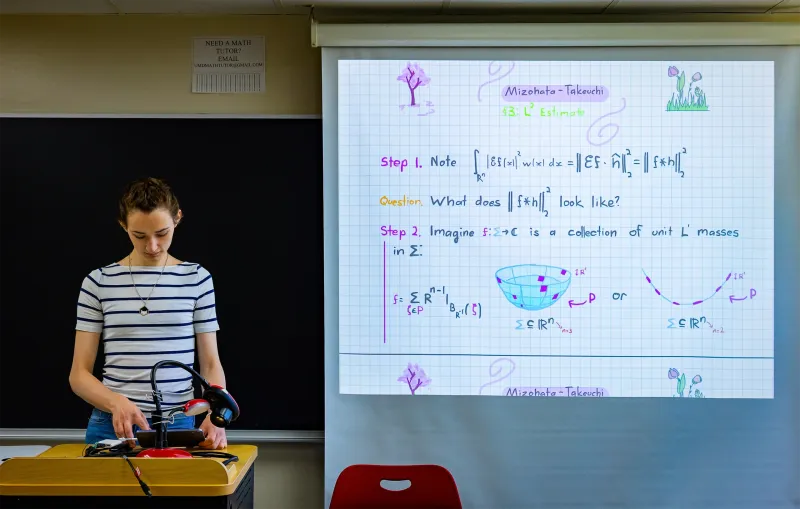 NEED A MATH
TUTOR?
EMAIL
Mizohata - Takeuchi
§3: L² Estimate
Step 1. Note ∫_{ℝⁿ} |Ef(x)|² w(x) dx = ‖Ef · ĥ‖₂² = ‖f*h‖₂²
Question. What does ‖f*h‖₂² look like?
Step 2. Imagine f:Σ→ℂ is a collection of unit L¹ masses
in Σ:
f = Σ_{ζ∈P} R^{n-1}|_{B_{R⁻¹}(ζ)}
P or
P
Σ ⊆ ℝⁿ n=3
Σ ⊆ ℝⁿ n=2
Mizohata - Takeuchi